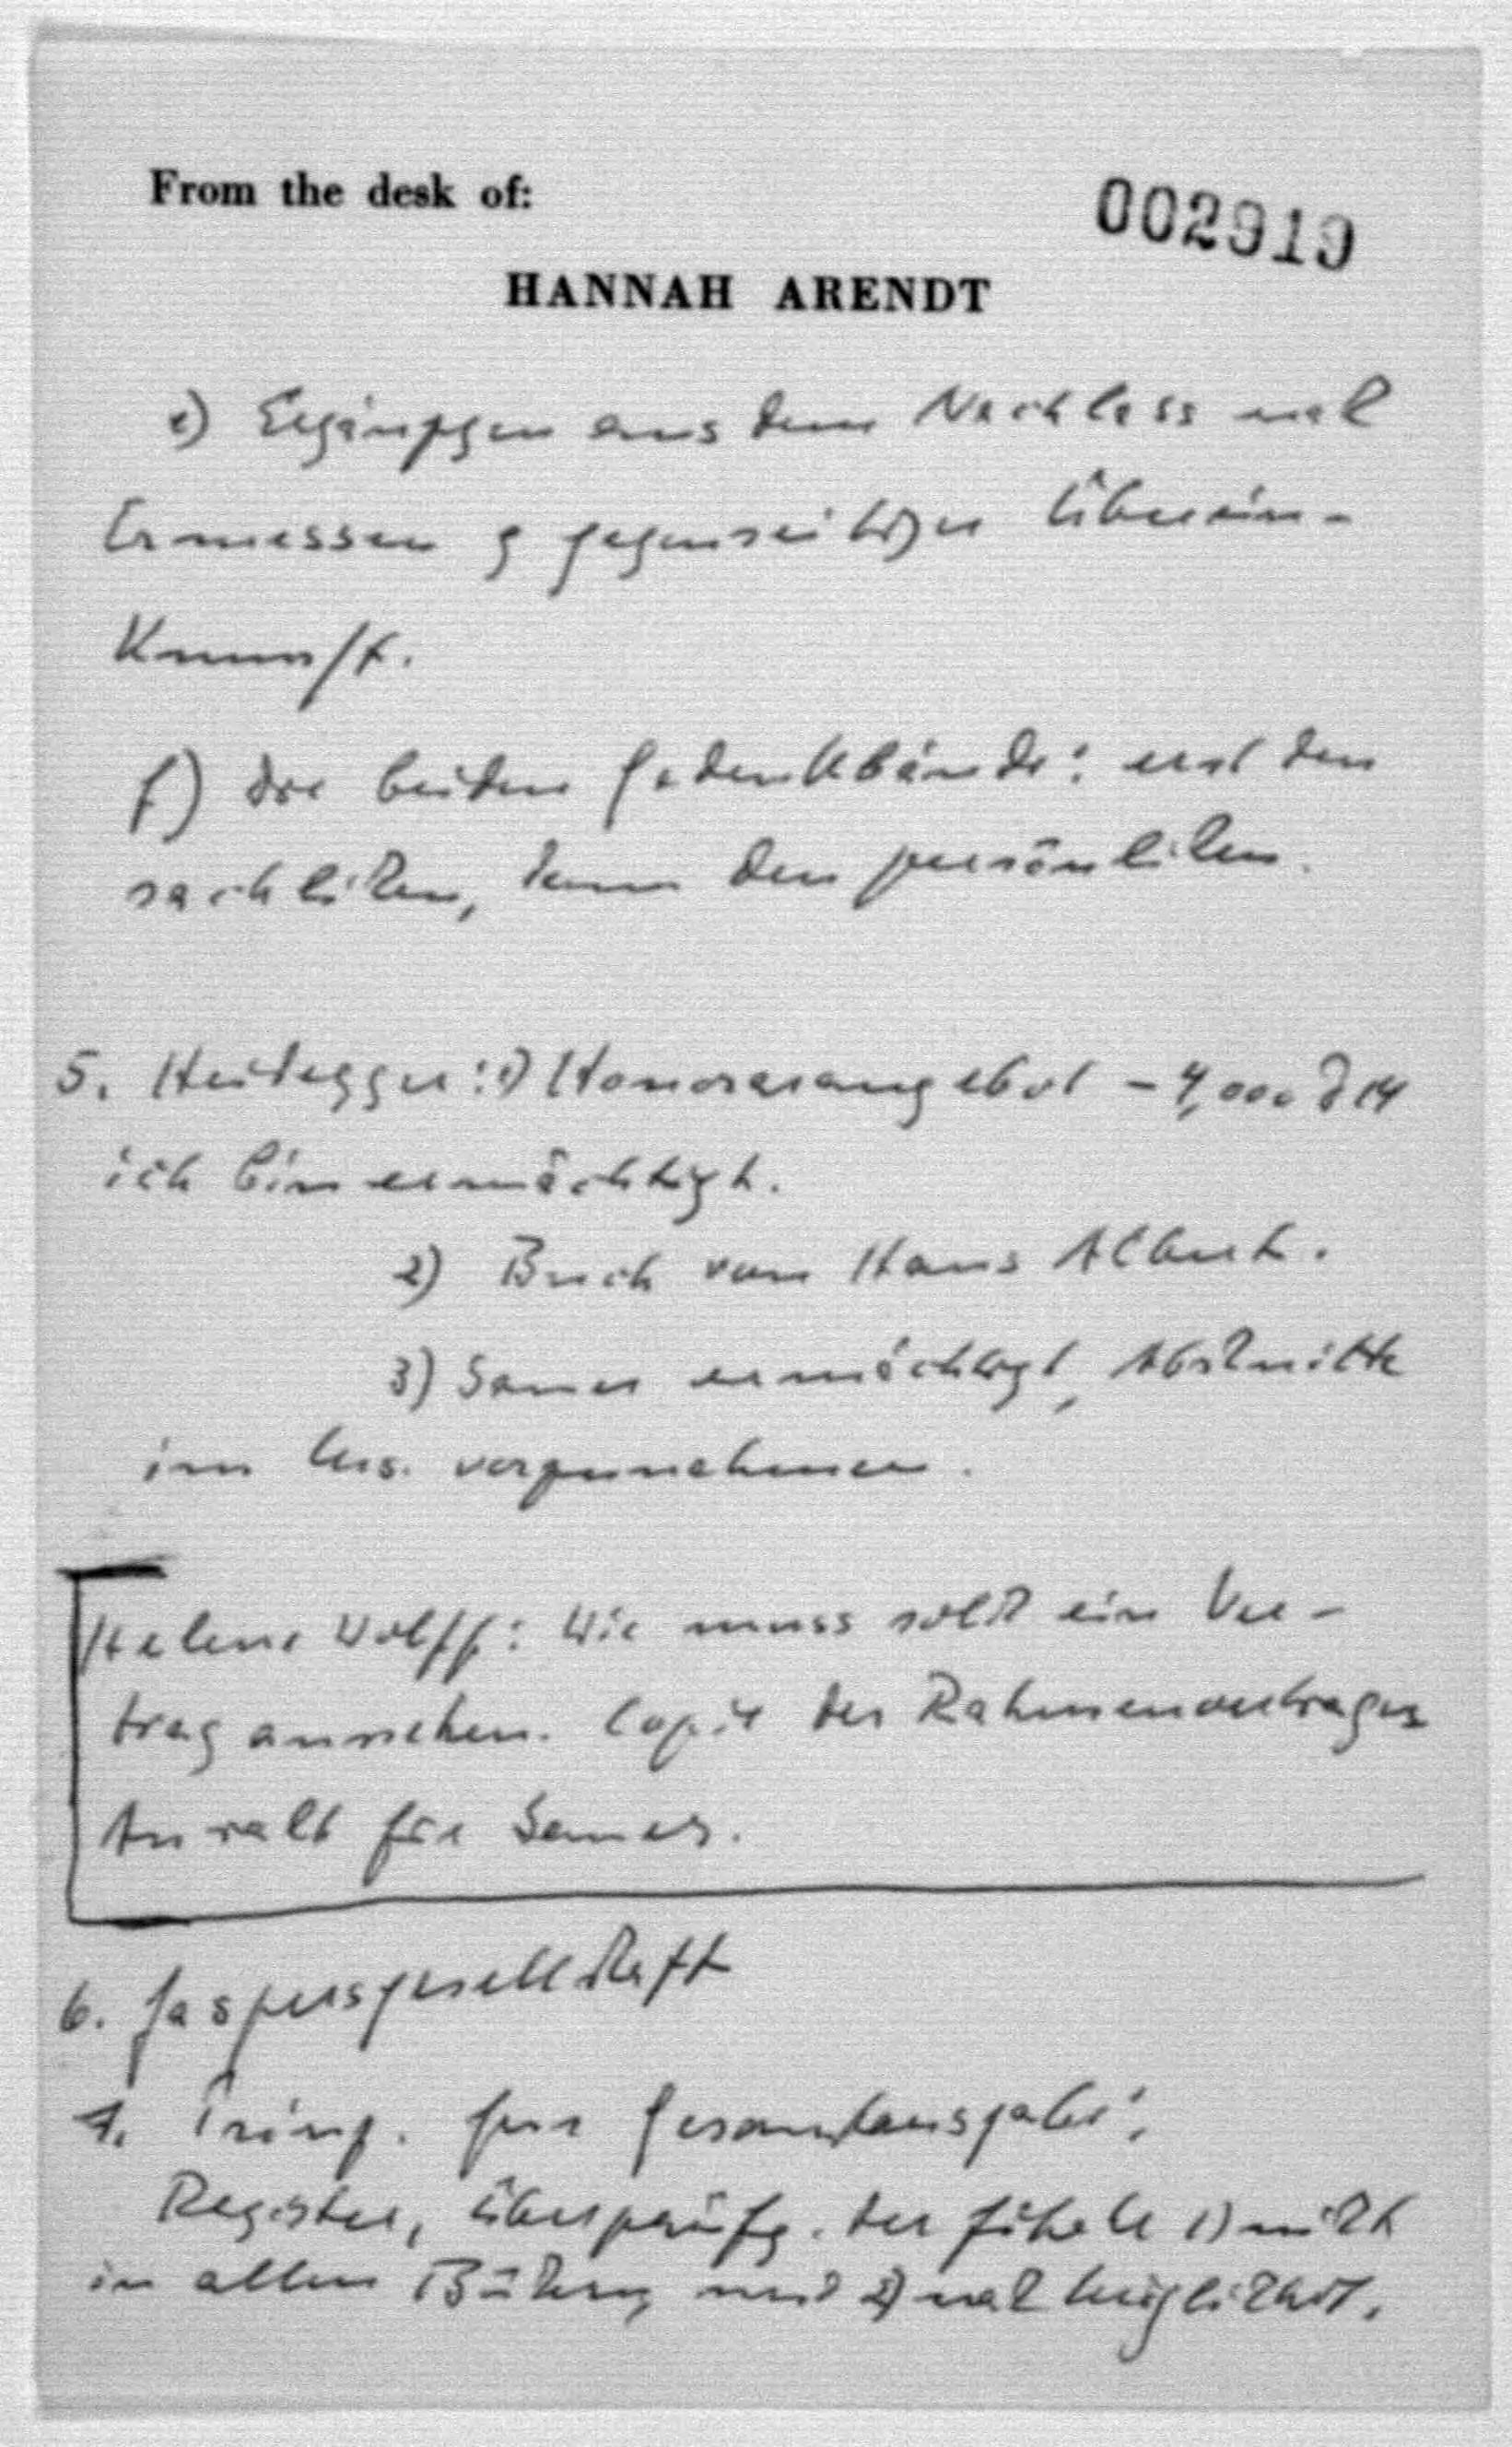 From the desk of:
002919
HANNAH ARENDT
e) Ergänzgen aus dem Nachlass nach
Ermessen & gegenseitiger Überein-
kunft.
f) Die beiden Gedenkbände: erst den
sachlichen, dann den persönlichen.
5. Heidegger: 1) Honorarangebot - 4,000 DM
ich bin ermächtigt.
2) Buch von Hans Albert.
3) Saner ermächtigt, Abschnitte
im Ms. vorzunehmen.
Helene Wolff: Wie muss solch ein Ver-
trag aussehen. Copie des Rahmenvertrages
Anwalt für Saner.
6. Jaspersgesellschaft
7. Prinz. für Gesamtausgabe:
Register, Überprüfg. der Zitate 1) nicht
in allen Büchern und 2) nach Möglichkeit.